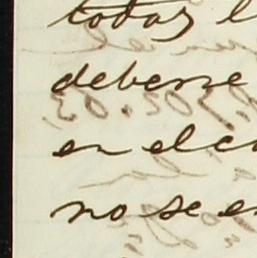 todas l
deberse
en el c
no se e